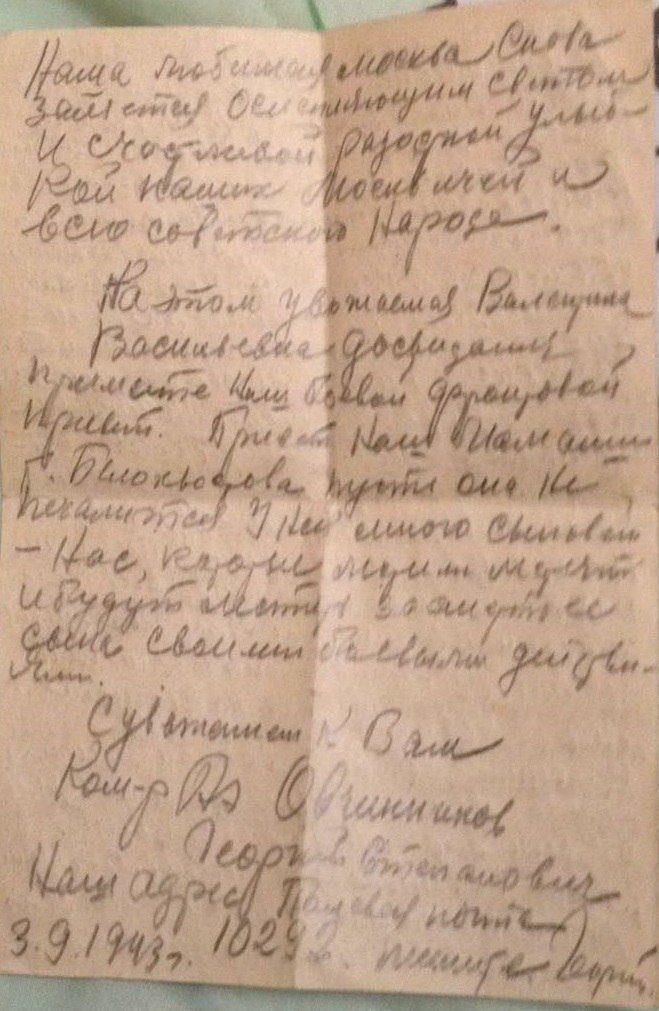 Наша любимая Москва Снова
зажжется Ослепляющим светом
и счастливой радостной улыб-
кой наших Москвичей и
всего советского Народа.
На этом уважаемая Валентина
Васильевна досвидания
примите Наш боевой фронтовой
привет. Привет Нашей Мамаши
пусть она Не
печалится У Ней много сыновей
- Нас, которые
и будут мстить за смерть ее
сына своими боевыми действи-
ями.
С уважением к Вам
Ком-р Овчинников
Георгий Степанович
Наш адрес Полевая почта
3.9.1943 г. 10292. пишите